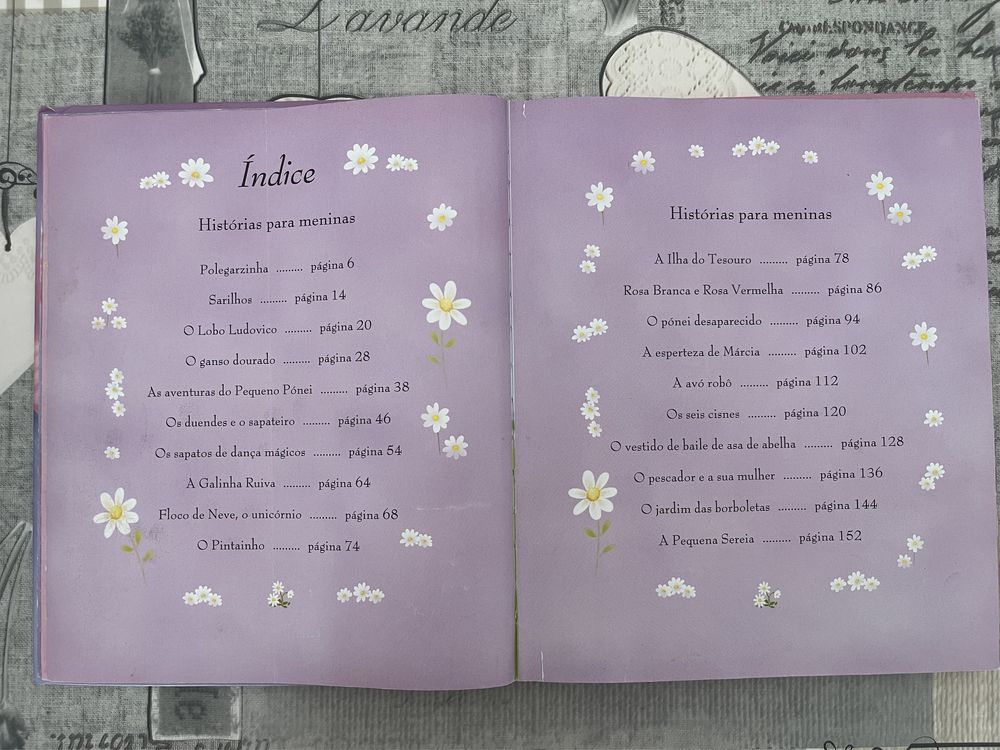 Lavande
CORRESPONDANCE
Índice
Histórias para meninas
Polegarzinha ......... página 6
Sarilhos ......... página 14
O Lobo Ludovico ......... página 20
O ganso dourado ......... página 28
As aventuras do Pequeno Pónei ......... página 38
Os duendes e o sapateiro ......... página 46
Os sapatos de dança mágicos ......... página 54
A Galinha Ruiva ......... página 64
Floco de Neve, o unicórnio ......... página 68
O Pintainho ......... página 74
Histórias para meninas
A Ilha do Tesouro ......... página 78
Rosa Branca e Rosa Vermelha ......... página 86
O pónei desaparecido ......... página 94
A esperteza de Márcia ......... página 102
A avó robô ......... página 112
Os seis cisnes ......... página 120
O vestido de baile de asa de abelha ......... página 128
O pescador e a sua mulher ......... página 136
O jardim das borboletas ......... página 144
A Pequena Sereia ......... página 152